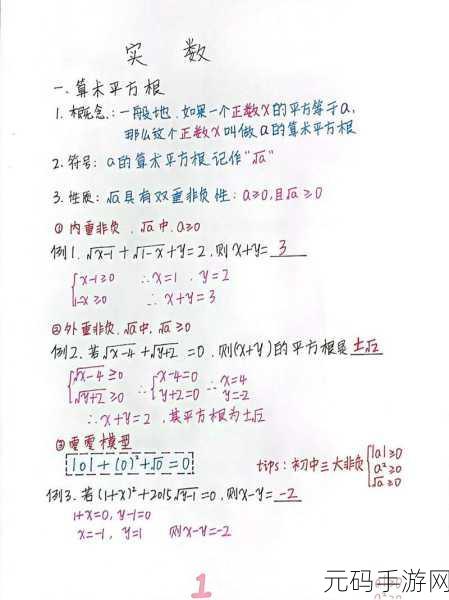 实 数
一.算术平方根
1.概念:一般地,如果一个正数x的平方等于a,
那么这个正数x叫做a的算术平方根
2.符号:a的算术平方根记作"√a"
3.性质:√a具有双重非负性:a≥0,且√a≥0
①内重非负,√a中,a≥0
例1.√x-1+√1-x+y=2,则x+y=3
{x-1≥0 ∴x=1,y=2
1-x≥0 ∴x+y=3
②外重非负,√a中,√a≥0
例2.若√x-4+√y+2=0,则(x+y)的平方根是±√2
{√x-4≥0 ∴{x-4=0 ∴x=4
√y+2≥0 y+2=0 y=-2
∴x+y=2,其平方根为±√2
③零零模型
|0|+(0)²+√0=0
tips:初中三大非负{|a|≥0
a²≥0
√a≥0
例3.若(1+x)²+2015√y-1=0,则x-y=-2
1+x=0,y-1=0
x=-1,y=1 则x-y=-2
1
元码手游网